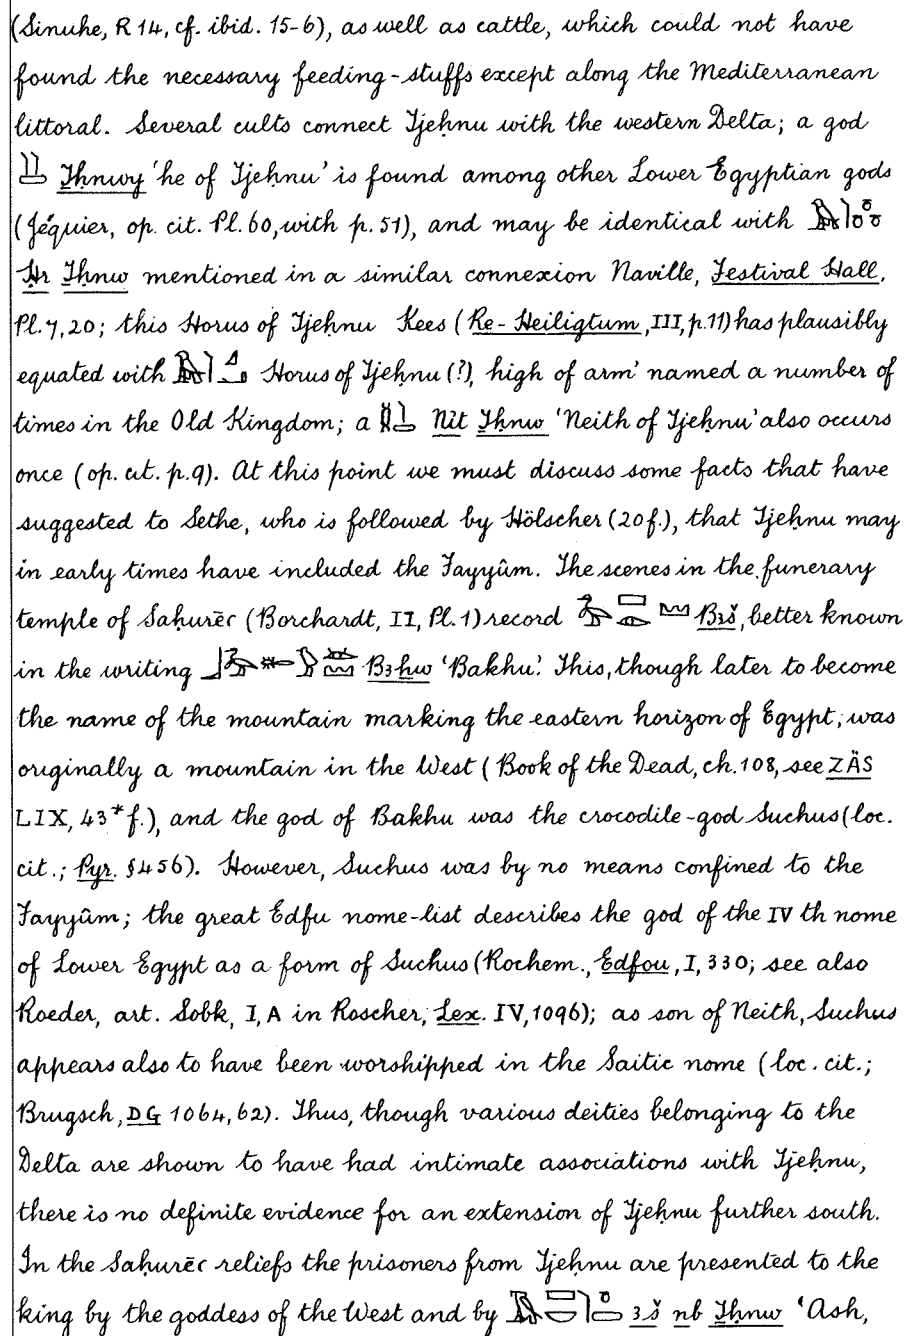 (Sinuhe, R 14, cf. ibid. 15-6), as well as cattle, which could not have
found the necessary feeding-stuffs except along the Mediterranean
littoral. Several cults connect Tjeḥnu with the western Delta; a god
Ṯḥnwy 'he of Tjeḥnu' is found among other Lower Egyptian gods
(Jéquier, op. cit. Pl. 60, with p. 51), and may be identical with
Ḥr Ṯḥnw mentioned in a similar connexion Naville, Festival Hall,
Pl. 7, 20; this Horus of Tjeḥnu Kees (Re-Heiligtum, III, p. 11) has plausibly
equated with Horus of Tjeḥnu (?), high of arm' named a number of
times in the Old Kingdom; a Nit Ṯḥnw 'Neith of Tjeḥnu' also occurs
once (op. cit. p. 9). At this point we must discuss some facts that have
suggested to Sethe, who is followed by Hölscher (20 f.), that Tjeḥnu may
in early times have included the Fayyûm. The scenes in the funerary
temple of Saḥurēꜥ (Borchardt, II, Pl. 1) record Bꜣš, better known
in the writing Bꜣḫw 'Bakhu'. This, though later to become
the name of the mountain marking the eastern horizon of Egypt, was
originally a mountain in the West (Book of the Dead, ch. 108, see ZÄS
LIX, 43* f.), and the god of Bakhu was the crocodile-god Suchus (loc.
cit.; Pyr. §456). However, Suchus was by no means confined to the
Fayyûm; the great Edfu nome-list describes the god of the IV th nome
of Lower Egypt as a form of Suchus (Rochem., Edfou, I, 330; see also
Roeder, art. Sobk, I, A in Roscher, Lex. IV, 1096); as son of Neith, Suchus
appears also to have been worshipped in the Saitic nome (loc. cit.;
Brugsch, DG 1064, 62). Thus, though various deities belonging to the
Delta are shown to have had intimate associations with Tjeḥnu,
there is no definite evidence for an extension of Tjeḥnu further south.
In the Saḥurēꜥ reliefs the prisoners from Tjeḥnu are presented to the
king by the goddess of the West and by ꜣš nb Ṯḥnw 'Ash,